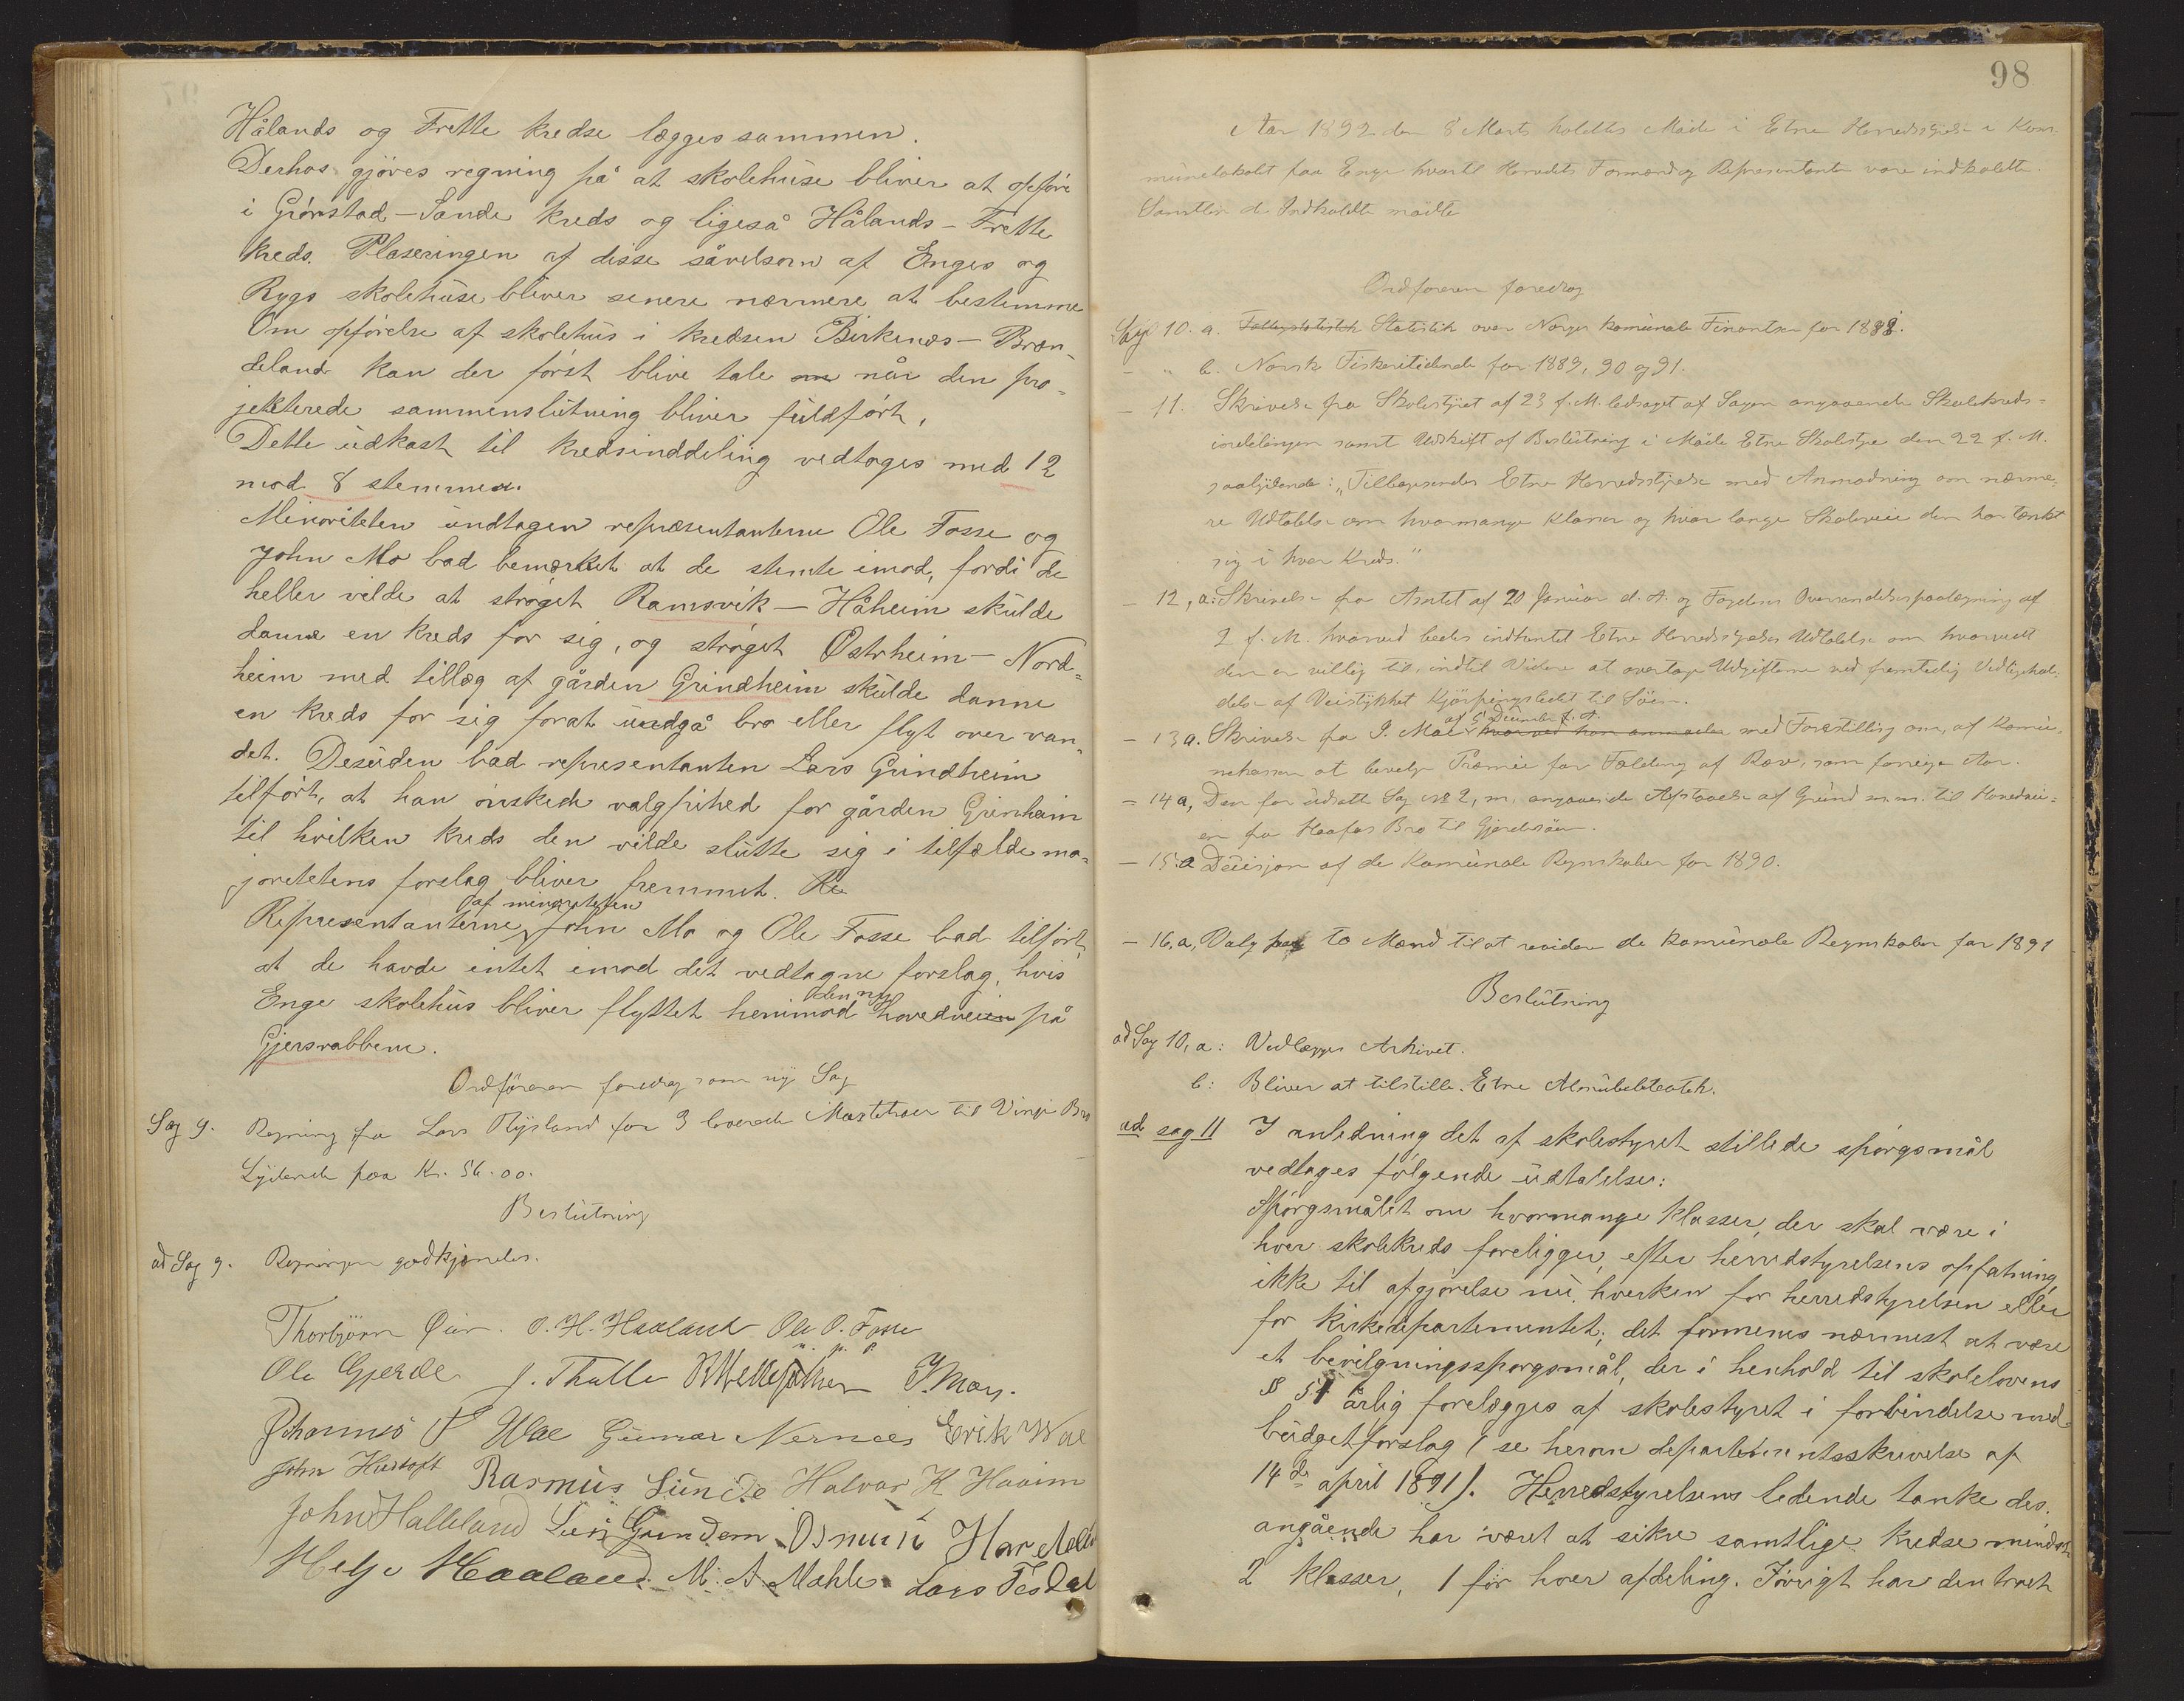 Hålands og Frette kredse lægges sammen.
Derhos gjöres regning på at skolehuse bliver at opføre
i Grönstad-Sande kreds og ligeså Hålands-Frette
kreds. Plaseringen af disse såvelsom af Enges og
Rygs skolehuse bliver senere nærmere at bestemme
Om opförelse af skolehus i kredsen Birkenæs-Bræn-
deland kan der först blive tale når den pro-
jekterede sammenslutning bliver fuldfört,
Dette udkast til kredsinddeling vedtoges med 12
mod 8 stemmer.
Minoriteten undtagen repræsentanterne Ole Fosse og
John Mo bad bemærket at de stemte imod, fordi de
heller vilde at ströget Ramsvik-Håheim skulde
danne en kreds for sig, og ströget Østrheim-Nord-
heim med tillæg af gården Grindheim skulde danne
en kreds for sig forat undgå bro eller flyt over van-
det. Desuden bad representanten Lars Grindheim
tilfört, at han önskede valgfrihed for gården Grinheim
til hvilken kreds den vilde slutte sig i tilfælde ma-
joritetens forslag bliver fremmet. Re
af minoriteten
Representanterne John Mo og Ole Fosse bad tilfört,
at de havde intet imod det vedtagne forslag, hvis
den ny
Enge skolehus bliver flyttet henimod hovedveien på
Gjersrabbene.
Ordföreren foredrog som ny Sag
Sag 9. Regning fra Lars Rysland for 3 leverede Mastetræer til Vinje Bro
Lydende paa Kr. 56.00.
Beslutning
ad Sag 9. Regningen godkjendes.
Thorbjörn Øien. O. H. Haaland Ole O. Fosse
m. p. P
Ole Gjerde J. Thulle J. Moe.
Johannes P Wae Gunnar Nernæs Erik Wae
John Hustoft Rasmus Sunde Halvor K Haaim
John Halleland Lars Grindem Osmun
Helje Haaland M. A. Mæhle Lars Tesdal
98
Aar 1892 den 8 Marts holdtes Møde i Etne Herredsstyrelse i Kom-
munelokalet paa Enge hvortil Herredets Formænd og Repræsentanter vare indkaldte.
Samtlen de Indkaldte mødte
Ordføreren foredrog
Sag 10. a. Statistik over Norges komunale Finantser for 1888.
- " b. Norsk Fiskeritidende for 1889, 90 og 91.
- 11. Skrivelse fra Skolestyret af 23 f. M. ledsaget af Sagen angaaende Skolekreds-
inddelingen samt Udskrift af Beslutning i Møde Etne Skolestyre den 22 f. M.
saalydende: "Tilbagesendes Etne Herredsstyrelse med Anmodning om nærme-
re Udtalelse om hvormange Klasser og hvor lange Skoleveie den har tænkt
sig i hver Kreds."
- 12, a: Skrivelse fra Amtet af 20 Januar d. A. og Fogdens Oversendelsespaategning af
2 f. M. hvorved bedes indhentet Etne Herredsstyrelses Udtalelse om hvorvidt
den er villig til, indtil Videre at overtage Udgifterne ved fremtidig Vedligehol-
delse af Veistykket Kjörpingsledet til Söen.
af 5 December f. A.
- 13 a. Skrivelse fra J. Moe hvorved han anmoder med Forestilling om, af Komu-
nekassen at bevilge Præmie for Fælding af Ræv, som forrige Aar.
- 14 a, Den før udsatte Sag No 2, m, angaaende Afstaaelse af Grund m.m. til Hovedvei-
en fra Haafos Bro til Gjerdesöen.
- 15 a Decisjon af de Kamunale Regnskaber for 1890.
- 16, a, Valg paa to Mænd til at revidere de kamunale Regnskaber for 1891
Beslutning
ad Sag 10, a: Vedlægges Arkivet.
b: Bliver at tilstille Etne Almubibliothek.
ad sag 11 I anledning det af skolestyret stillede spörgsmål
vedtages fölgende udtalelse:
Spörgsmålet om hvormange klasser, der skal være i
hver skolekreds foreligger, efter herredstyrelsens opfatning,
ikke til afgjörelse nu, hverken for herredstyrelsen eller
for kirkedepartementet; det formenes nærmest at være
et bevilgningsspörgsmål, der i henhold til skolelovens
§ 51 årlig forelægges af skolestyret i forbindelse med
budgetforslag (se herom departementsskrivelse af
14de april 1891). Herredstyrelsens ledende tanke des-
angående har været at sikre samtlige kredse mindst
2 klasser, 1 for hver afdeling. Iövrigt har den troet